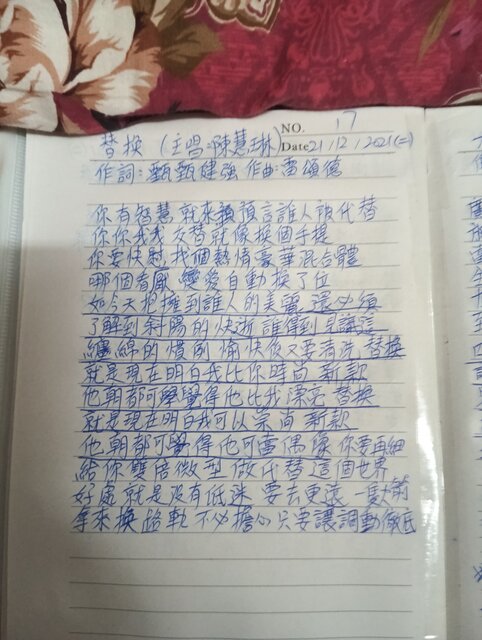 NO. 17
替換 (主唱:陳慧琳) Date 21/12/2021(二)
作詞:甄甄健強 作曲:雷頌德
你有智慧 就來預言誰人被代替
你你我我 交替就像換個手提
你要快對 找個熱情豪華混合體
哪個看厭 變愛自動換了位
如今天把擁到誰人的美麗 還必須
了解到斜陽的快逝 誰得到
纏綿的慣例 愉快後又要清洗 替換
就是現在明白我比你時尚 新款
他朝都可學覺得他比我漂亮 替換
就是現在明白我可以崇尚 新款
他朝都可覺得他可當偶像 你要再細
給你雙倍微型 做代替 這個世界
好處就是沒有低迷 要去更遠 一對
拿來換路軌 不必擔心 只要讓調動徹底